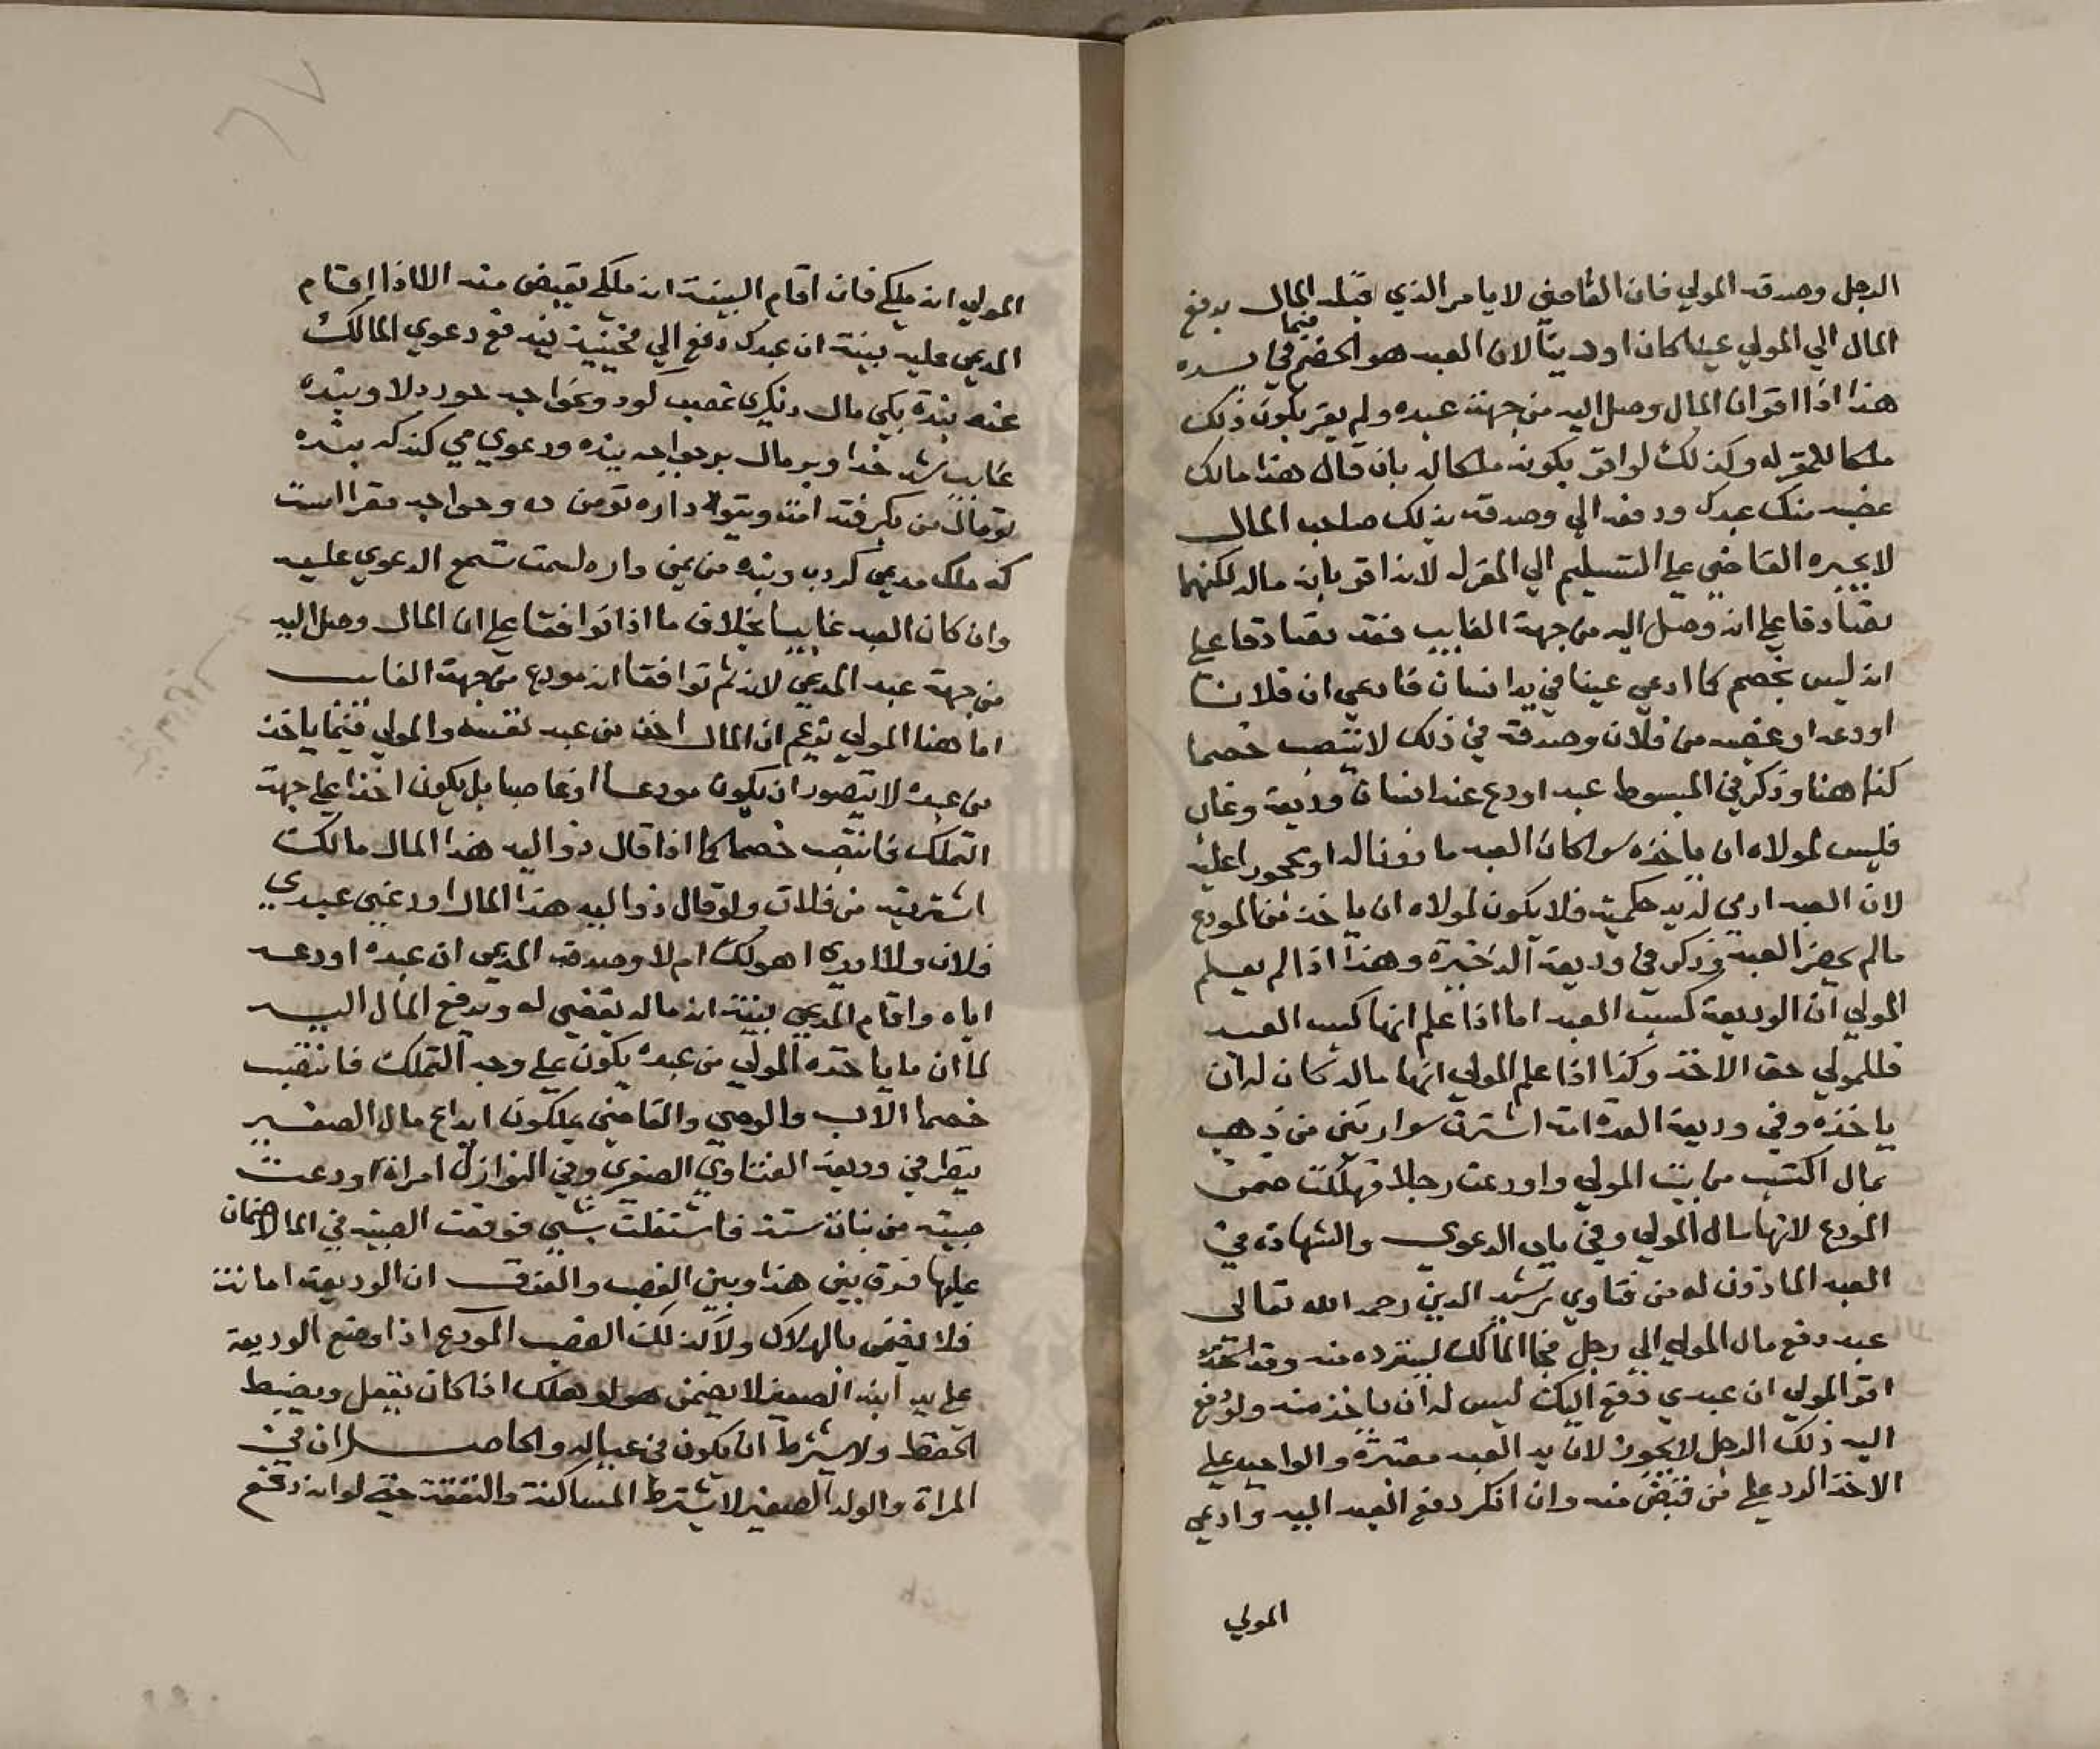 الرجل وصدقه المولي فان القاضي لا يامر الذي قبله المال بدفع
المال الي المولي عينا كان او دينا لان العبد هو الخصم فيما في يده
هذا اذا اقر ان المال وصل اليه من جهة عبده ولم يقر بكون ذلك
ملكا للمقر له وكذلك لو اقر بكونه ملكا له بان قال هذا مالك
غصبه منك عبدك ودفعه الي وصدقه بذلك صاحب المال
لا يجبره القاضي علي التسليم الي المقر له لانه اقر بانه ماله لكنهما
تصادقا علي انه وصل اليه من جهة الغايب فقد تصادقا علي
انه ليس بخصم كما ادعي عينا في يد انسان فادعي ان فلانا
اودعه او غصبه من فلان وصدقه في ذلك لا ينتصب خصما
كذا هنا وذكر في المبسوط عبد اودع عند انسان وديعة وغاب
فليس لمولاه ان ياخذه سوا كان العبد ماذونا له او محجورا عليه
لان العبد ادمي له يد حكمية فلا يكون لمولاه ان ياخذ من المودع
مالم يحضر العبد وذكر في وديعة الذخيرة وهذا اذا لم يعلم
المولي ان الوديعة كسب العبد اما اذا علم انها كسب العبد
فللمولي حق الاخذ وكذا اذا علم المولي انها ماله كان له ان
ياخذه وفي وديعة العدة امة اشترت سوارين من ذهب
بمال اكتسب من بيت المولي واودعت رجلا فهلكت ضمن
المودع لانها مال المولي وفي باب الدعوي والشهادة في
العبد الماذون له من فتاوي رشيد الدين رحمه الله تعالى
عبد دفع مال المولي الي رجل فجا المالك ليسترده منه وقد
اقر المولي ان عبدي دفع اليك ليس له ان ياخذ منه ولو دفع
اليه ذلك الرجل لا يجوز لان يد العبد معتبرة والواجب علي
الاخذ الرد علي من قبض منه وان انكر دفع العبد اليه وادعي
المولي
٦٧
المولي انه ملكي فان اقام البينة انه ملكي يقبض منه الا اذا اقام
المدعي عليه بينة ان عبدك دفع الي فحينيذ يندفع دعوي المالك
عنه بنده يكي مال ديكري غصب كرد وبخواجه خود داد وبنده
غايب شد خداوند مال بر خواجه بنده دعوي مي كند كه بنده
تو مال من بكرفته است وبتو داده تو من ده وخواجه مقر است
كه ملك مدعي كرد وبنده من بمن داده است تسمع الدعوي عليه
وان كان العبد غايبا بخلاف ما اذا توافقا علي ان المال وصل اليه
من جهة عبد المدعي لانه ثم توافقا انه مودع من جهة الغايب
اما هنا المولي يزعم ان المال اخذ من عبد نفسه والمولي فيما ياخذ
من عبده لا يتصور ان يكون مودعا او غاصبا بل يكون اخذا علي جهة
التملك فانتصب خصما كما اذا قال ذو اليد هذا المال مالك
اشتريته من فلان ولو قال ذو اليد هذا المال اودعني عبدي
فلان ولا ادري اهو لك ام لا وصدقه المدعي ان عبده اودعه
اياه واقام المدعي بينة انه ماله يقضي له ويدفع المال اليه
لما ان ما ياخذه المولي من عبده يكون علي وجه التملك فانتصب
خصما الاب والوصي والقاضي يملكون ايداع مال الصغير
ينظر في وديعة الفتاوي الصغري وفي النوازل امراة اودعت
صبيته من بنات ستة فاشتغلت بشي فوقعت الصبية في الماء لا ضمان
عليها فرق بين هذا وبين الغصب والفرق ان الوديعة امانة
فلا يضمن بالهلاك ولا كذلك الغصب المودع اذا وضع الوديعة
علي يد ابنه الصغير لا يضمن هو لو هلك اذا كان يعقل ويضبط
الحفظ ولا يشترط ان يكون في عياله والحاصل ان في
المراة والولد الصغير لا يشترط المساكنة والنفقة حتي لو انه دفع